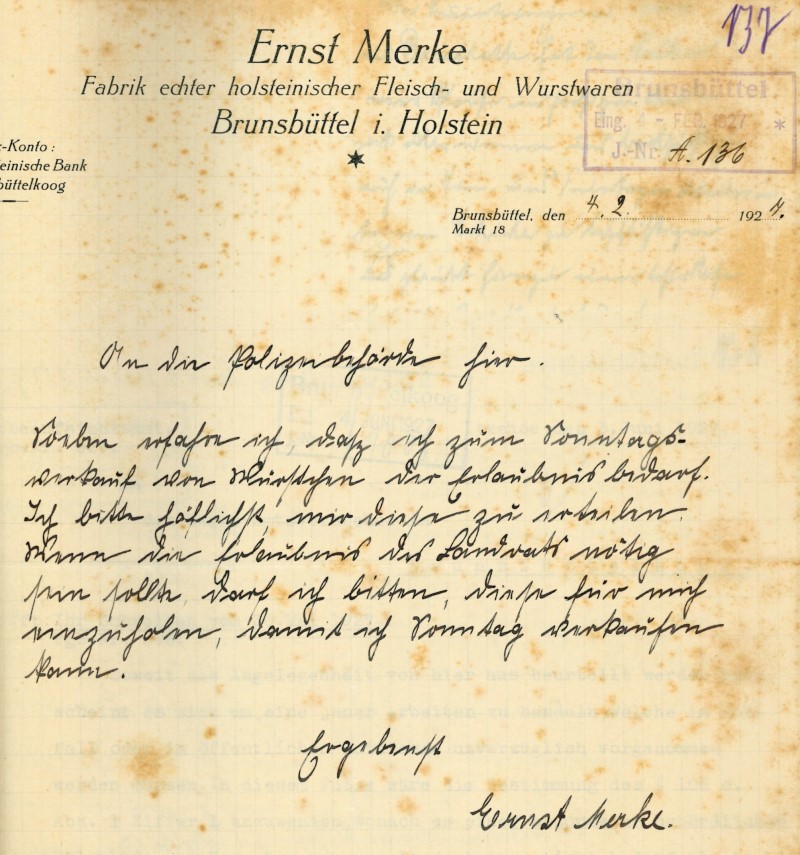 137
Ernst Merke
Fabrik echter holsteinischer Fleisch- und Wurstwaren
Brunsbüttel i. Holstein
Brunsbüttel.
Eing. 4 - FEB. 1927 *
J.-Nr. A. 136
-Konto:
einische Bank
büttelkoog
Brunsbüttel, den 4. 2. 1927.
Markt 18
An die Polizeibehörde hier.
Soeben erfahre ich, dasz ich zum Sonntags-
verkauf von Würstchen der Erlaubnis bedarf.
Ich bitte höflichst, mir diese zu erteilen.
Wenn die Erlaubnis des Landrats nötig
sein sollte, darf ich bitten, diese für mich
einzuholen, damit ich Sonntag verkaufen
kann.
Ergebenst
Ernst Merke.